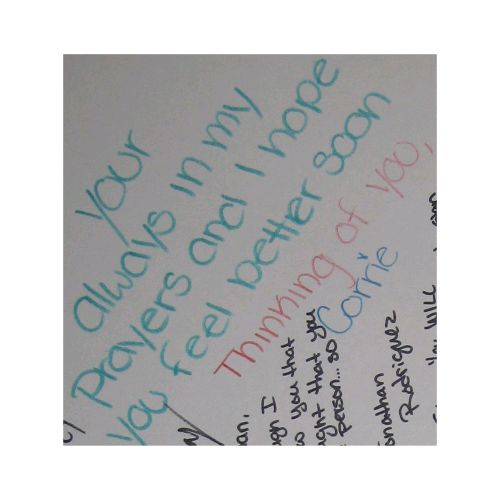 your
always in my
Prayers and I hope
you feel better soon
Thinking of you,
Corrie
an,
gh I
o you that
ght that you
person... so
onathan
Rodriguez
You WILL